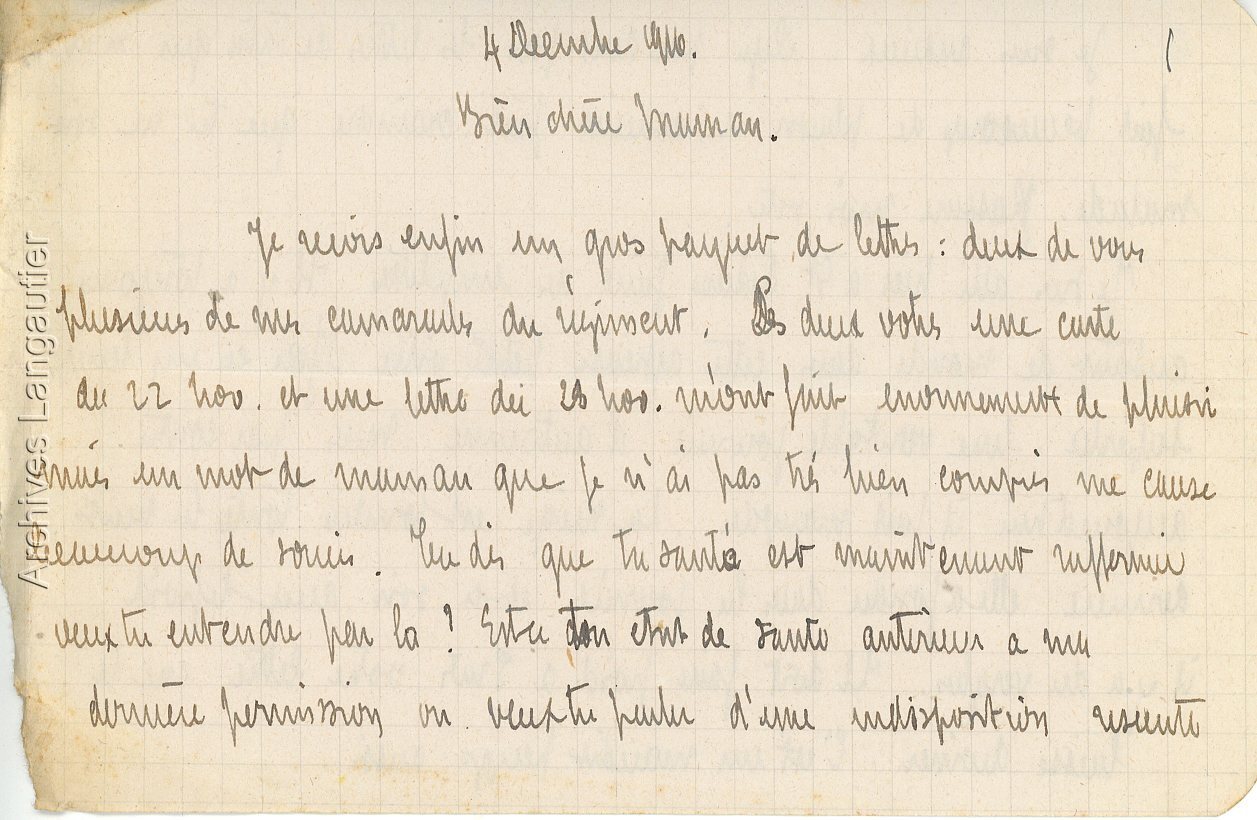 4 Decembre 1916.
Bien chère Maman.
Je reçois enfin un gros paquet de lettres : deux de vous
plusieurs de mes camarades du régiment. Les deux votres une carte
du 22 nov. et une lettre du 23 nov. m'ont fait enormement de plaisir
mais un mot de maman que je n'ai pas très bien compris me cause
beaucoup de soucis. Tu dis que ta santé est maintenant raffermie
veux tu entendre par la ? Est ce ton etat de santé anterieur a ma
dernière permission ou veux tu parler d'une indisposition resente
Archives Langautier